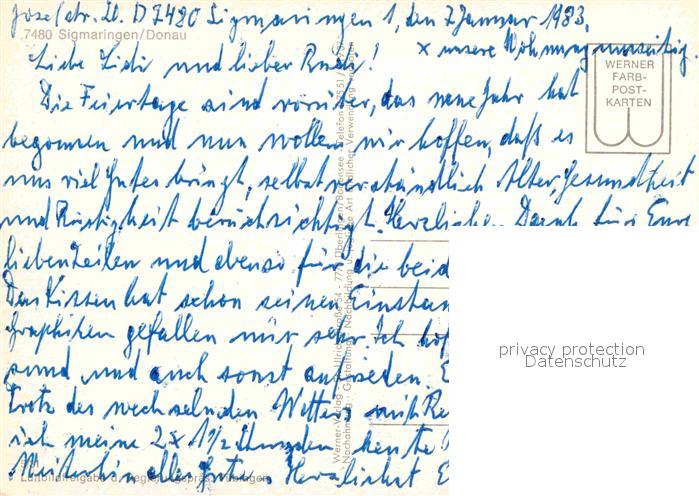 Josefstr. 20. D 7480 Sigmaringen 1, den 7. Januar 1983.
7480 Sigmaringen/Donau
x unsere Wohnung umseitig.
Liebe Lidi und lieber Rudi!
WERNER
FARB-
POST-
KARTEN
Die Feiertage sind vorüber, das neue Jahr hat
begonnen und nun wollen wir hoffen, daß es
uns viel Gutes bringt, selbstverständlich Alter, Gesundheit
und Rüstigkeit berücksichtigt. Herzlichen Dank für Eure
lieben Zeilen und ebenso für die beid
Das Kissen hat schon seinen Einstan
Graphiken gefallen mir sehr. Ich hof
sund und auch sonst zufrieden. E
Trotz des wechselnden Wetters mit Re
ich meine 2 x 1½ Stunden heute
Weiterhin alles Gute. Herzlichst E
Luftbildfreigabe d. Regierungspräs. Tübingen
privacy protection
Datenschutz